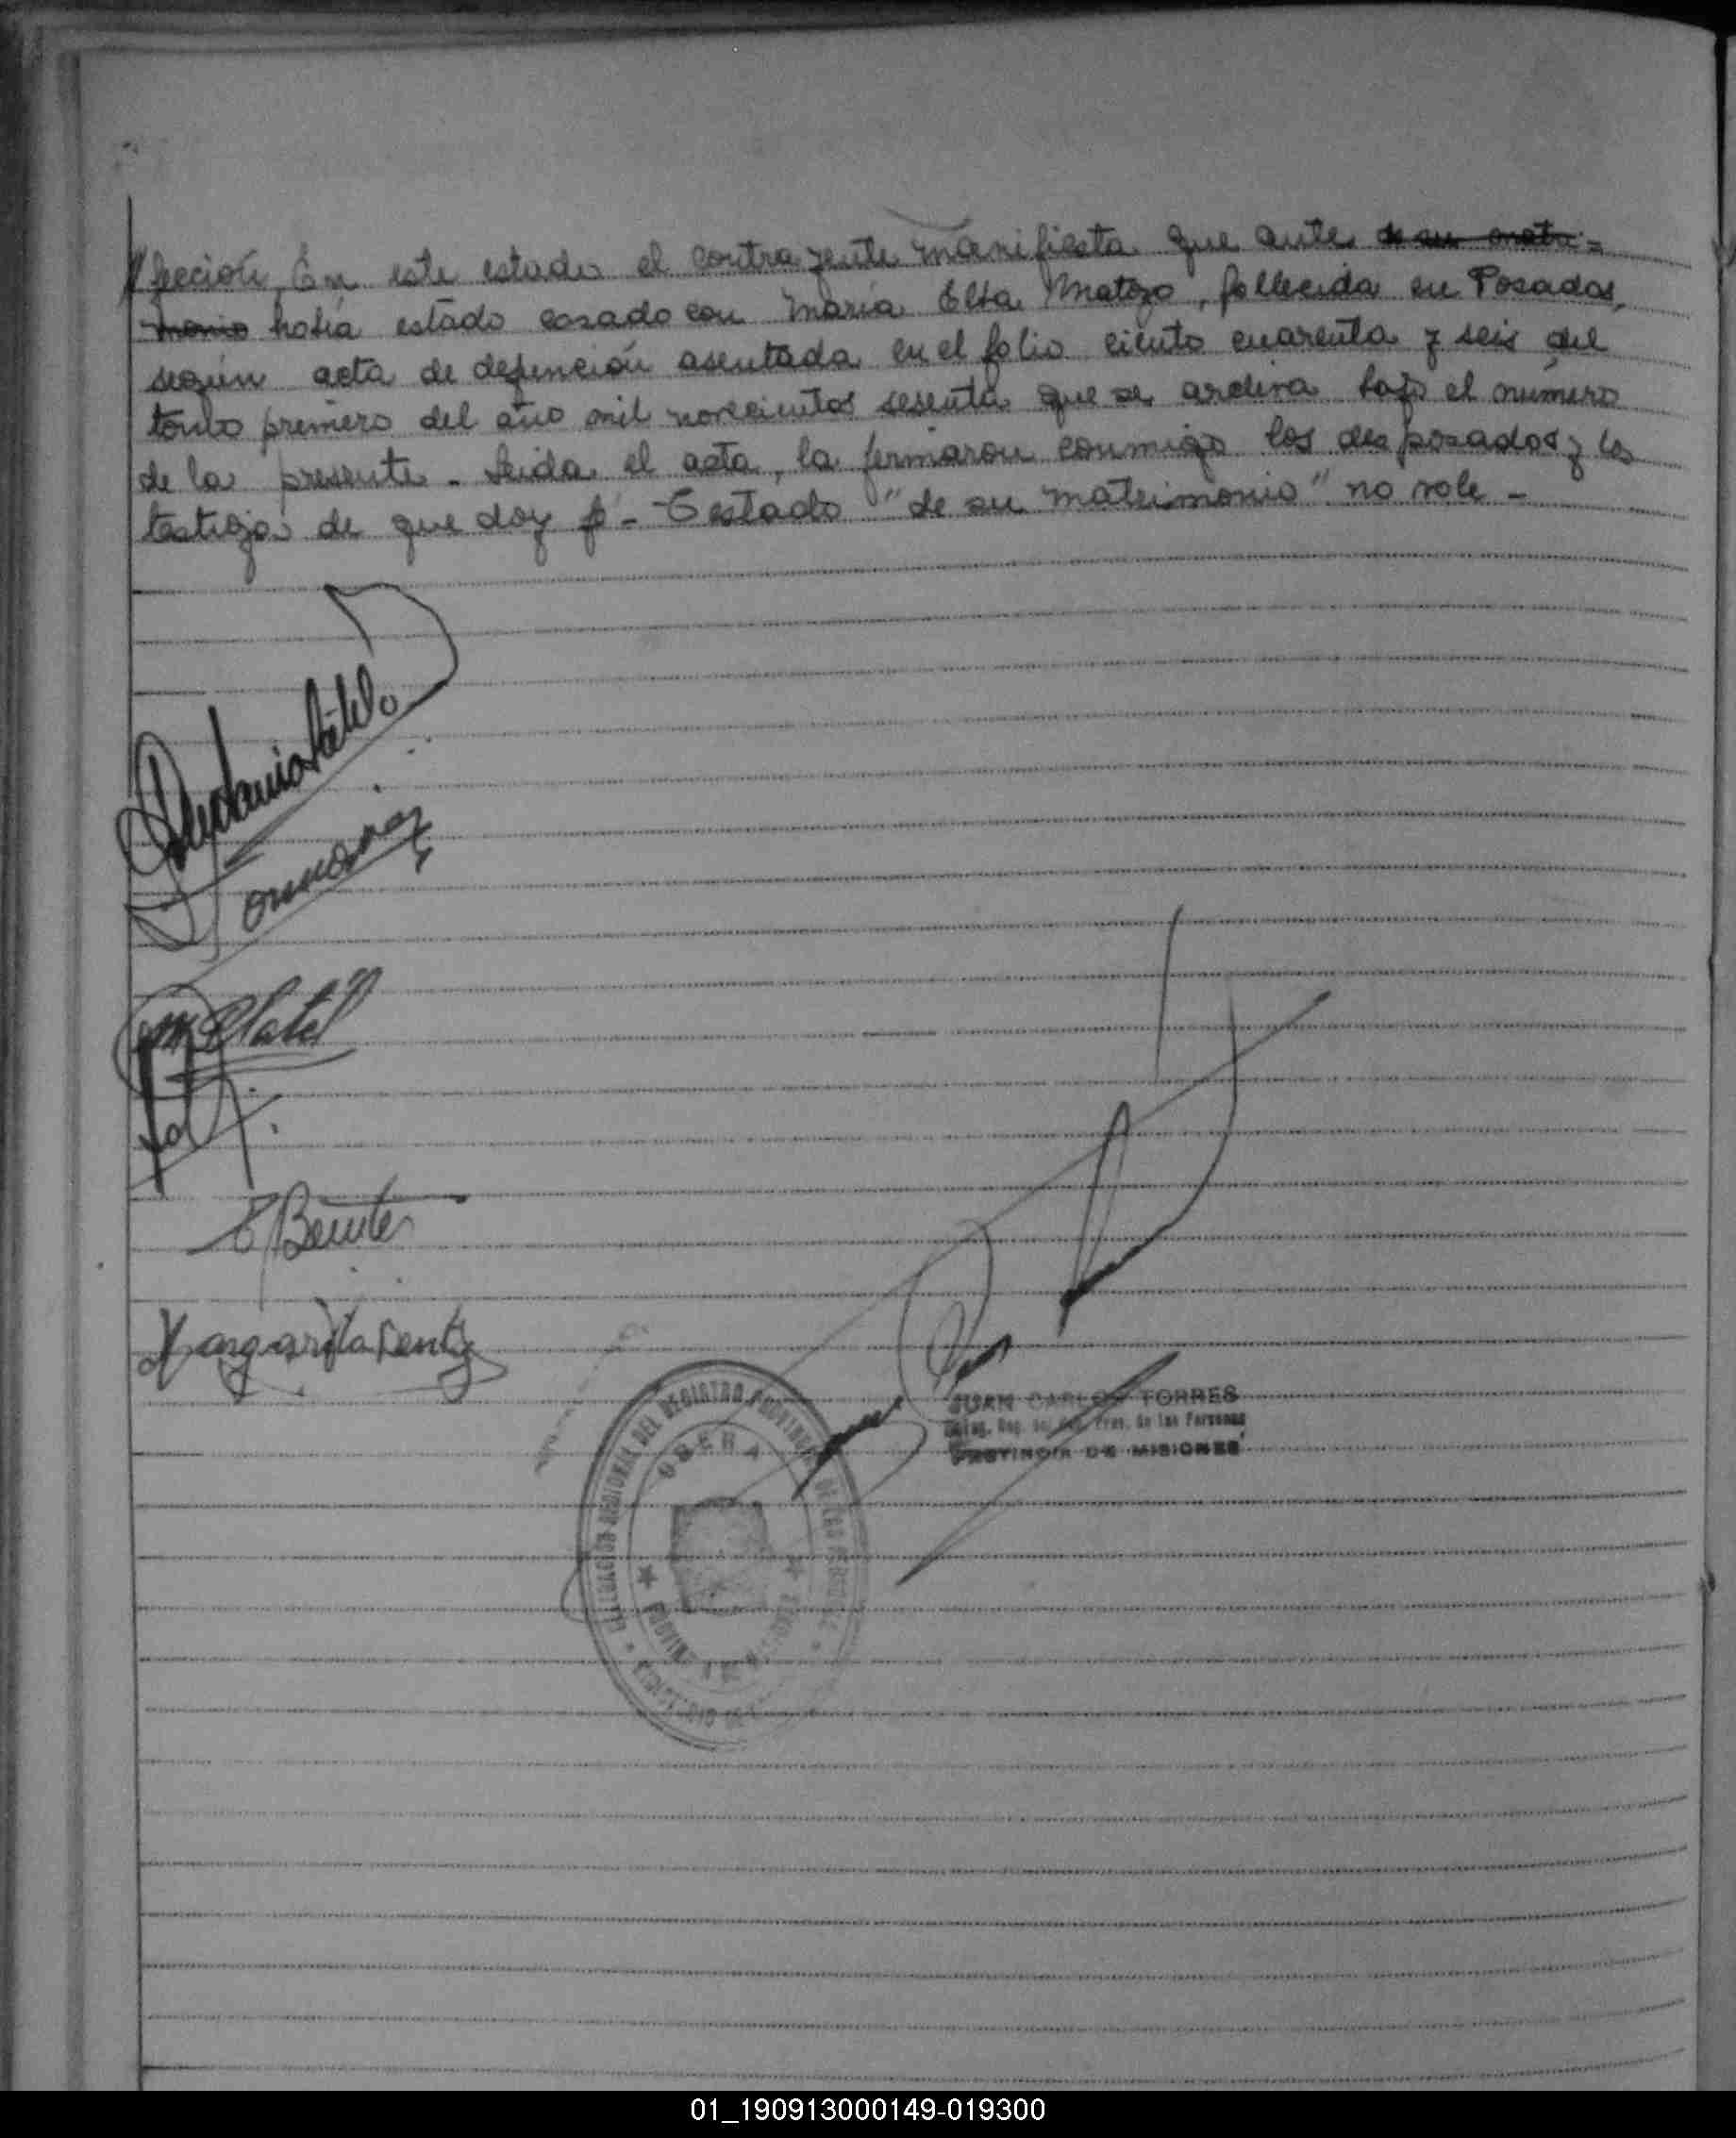 //sección. En este estado el contrayente manifiesta que ante de su matri-
monio había estado casado con María Elsa Matozo, fallecida en Posadas,
según acta de defunción asentada en el folio ciento cuarenta y seis del
tomo primero del año mil novecientos sesenta que se archiva bajo el número
de la presente. Leida el acta, la firmaron conmigo los desposados y los
testigos de que doy fé - Testado "de su matrimonio" no vale -
E Benitez
Margarita
JUAN CARLOS TORRES
de las Personas
PROVINCIA DE MISIONES
DELEGACION REGIONAL DEL REGISTRO PROVINCIAL DE LAS PERSONAS
OBERA
01_190913000149-019300